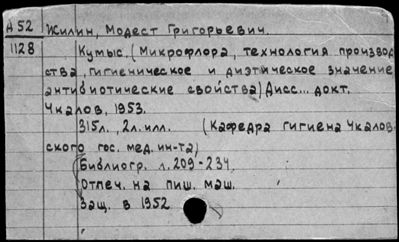 А 52 Жилин, Модест Григорьевич.
1128 Кумыс, (Микрофлора, технология производ
ства, гигиеническое и диэтическое значение
антибиотические свойства) Дисс... докт.
Чкалов, 1953.
315л., 2л. илл. (Кафедра гигиена Чкалов-
ского гос. мед. ин-та)
(Библиогр. л. 209-234.
Отпеч. на пиш. маш.
Защ. в 1952